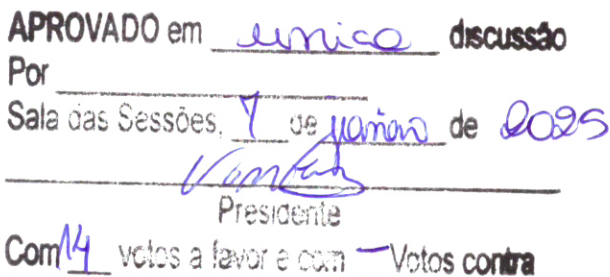 APROVADO em unica discussão
Por
Sala das Sessões, 7 de janeiro de 2025
Presidente
Com 14 votos a favor e com — Votos contra